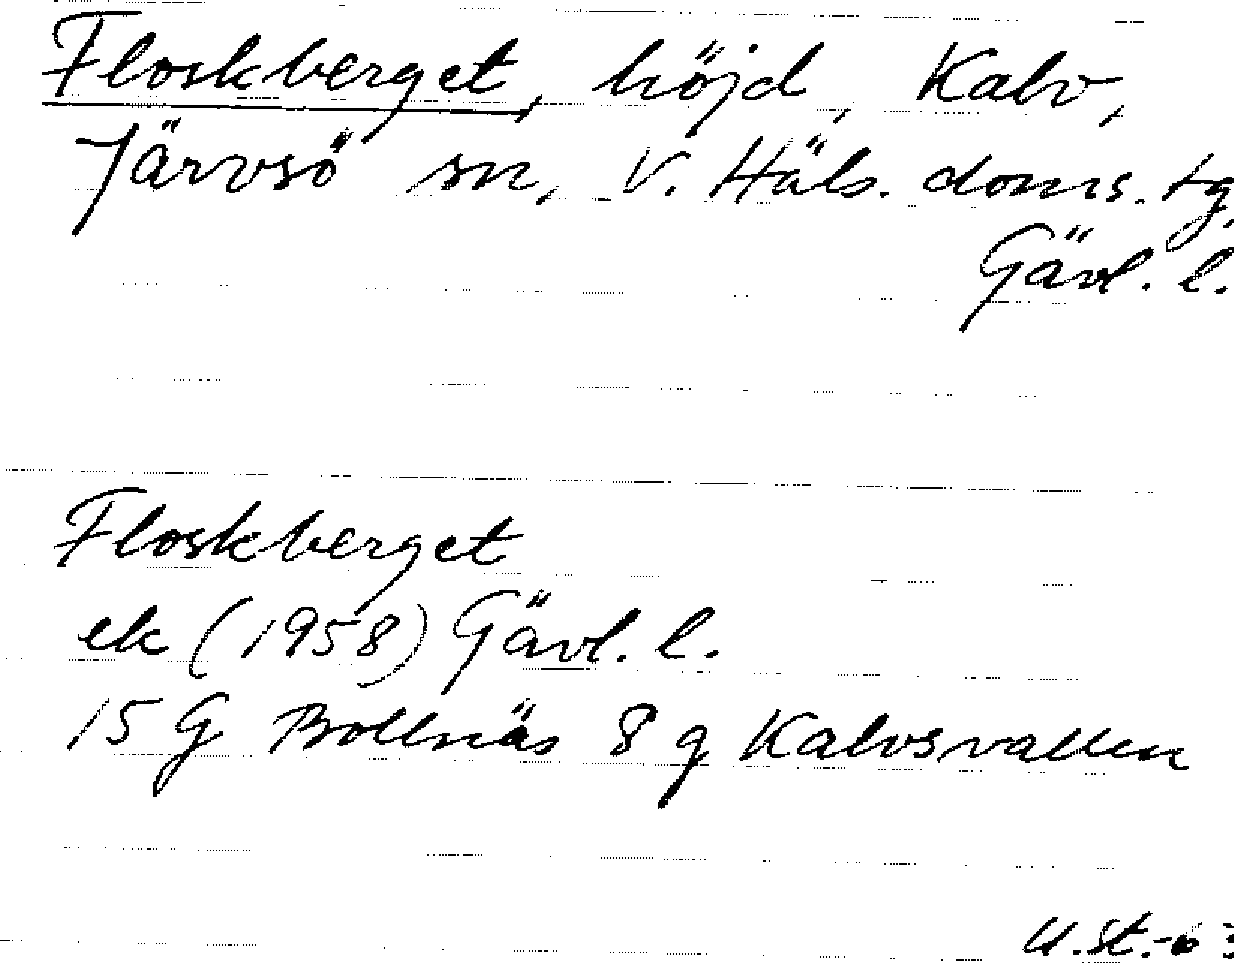 Floskberget, höjd, Kalv,
Järvsö sn, V. Häls. doms. tg,
Gävl. l.
Floskberget
ek (1958) Gävl. l.
15 G Bollnäs 8 g Kalvsvallen
U.St.-63